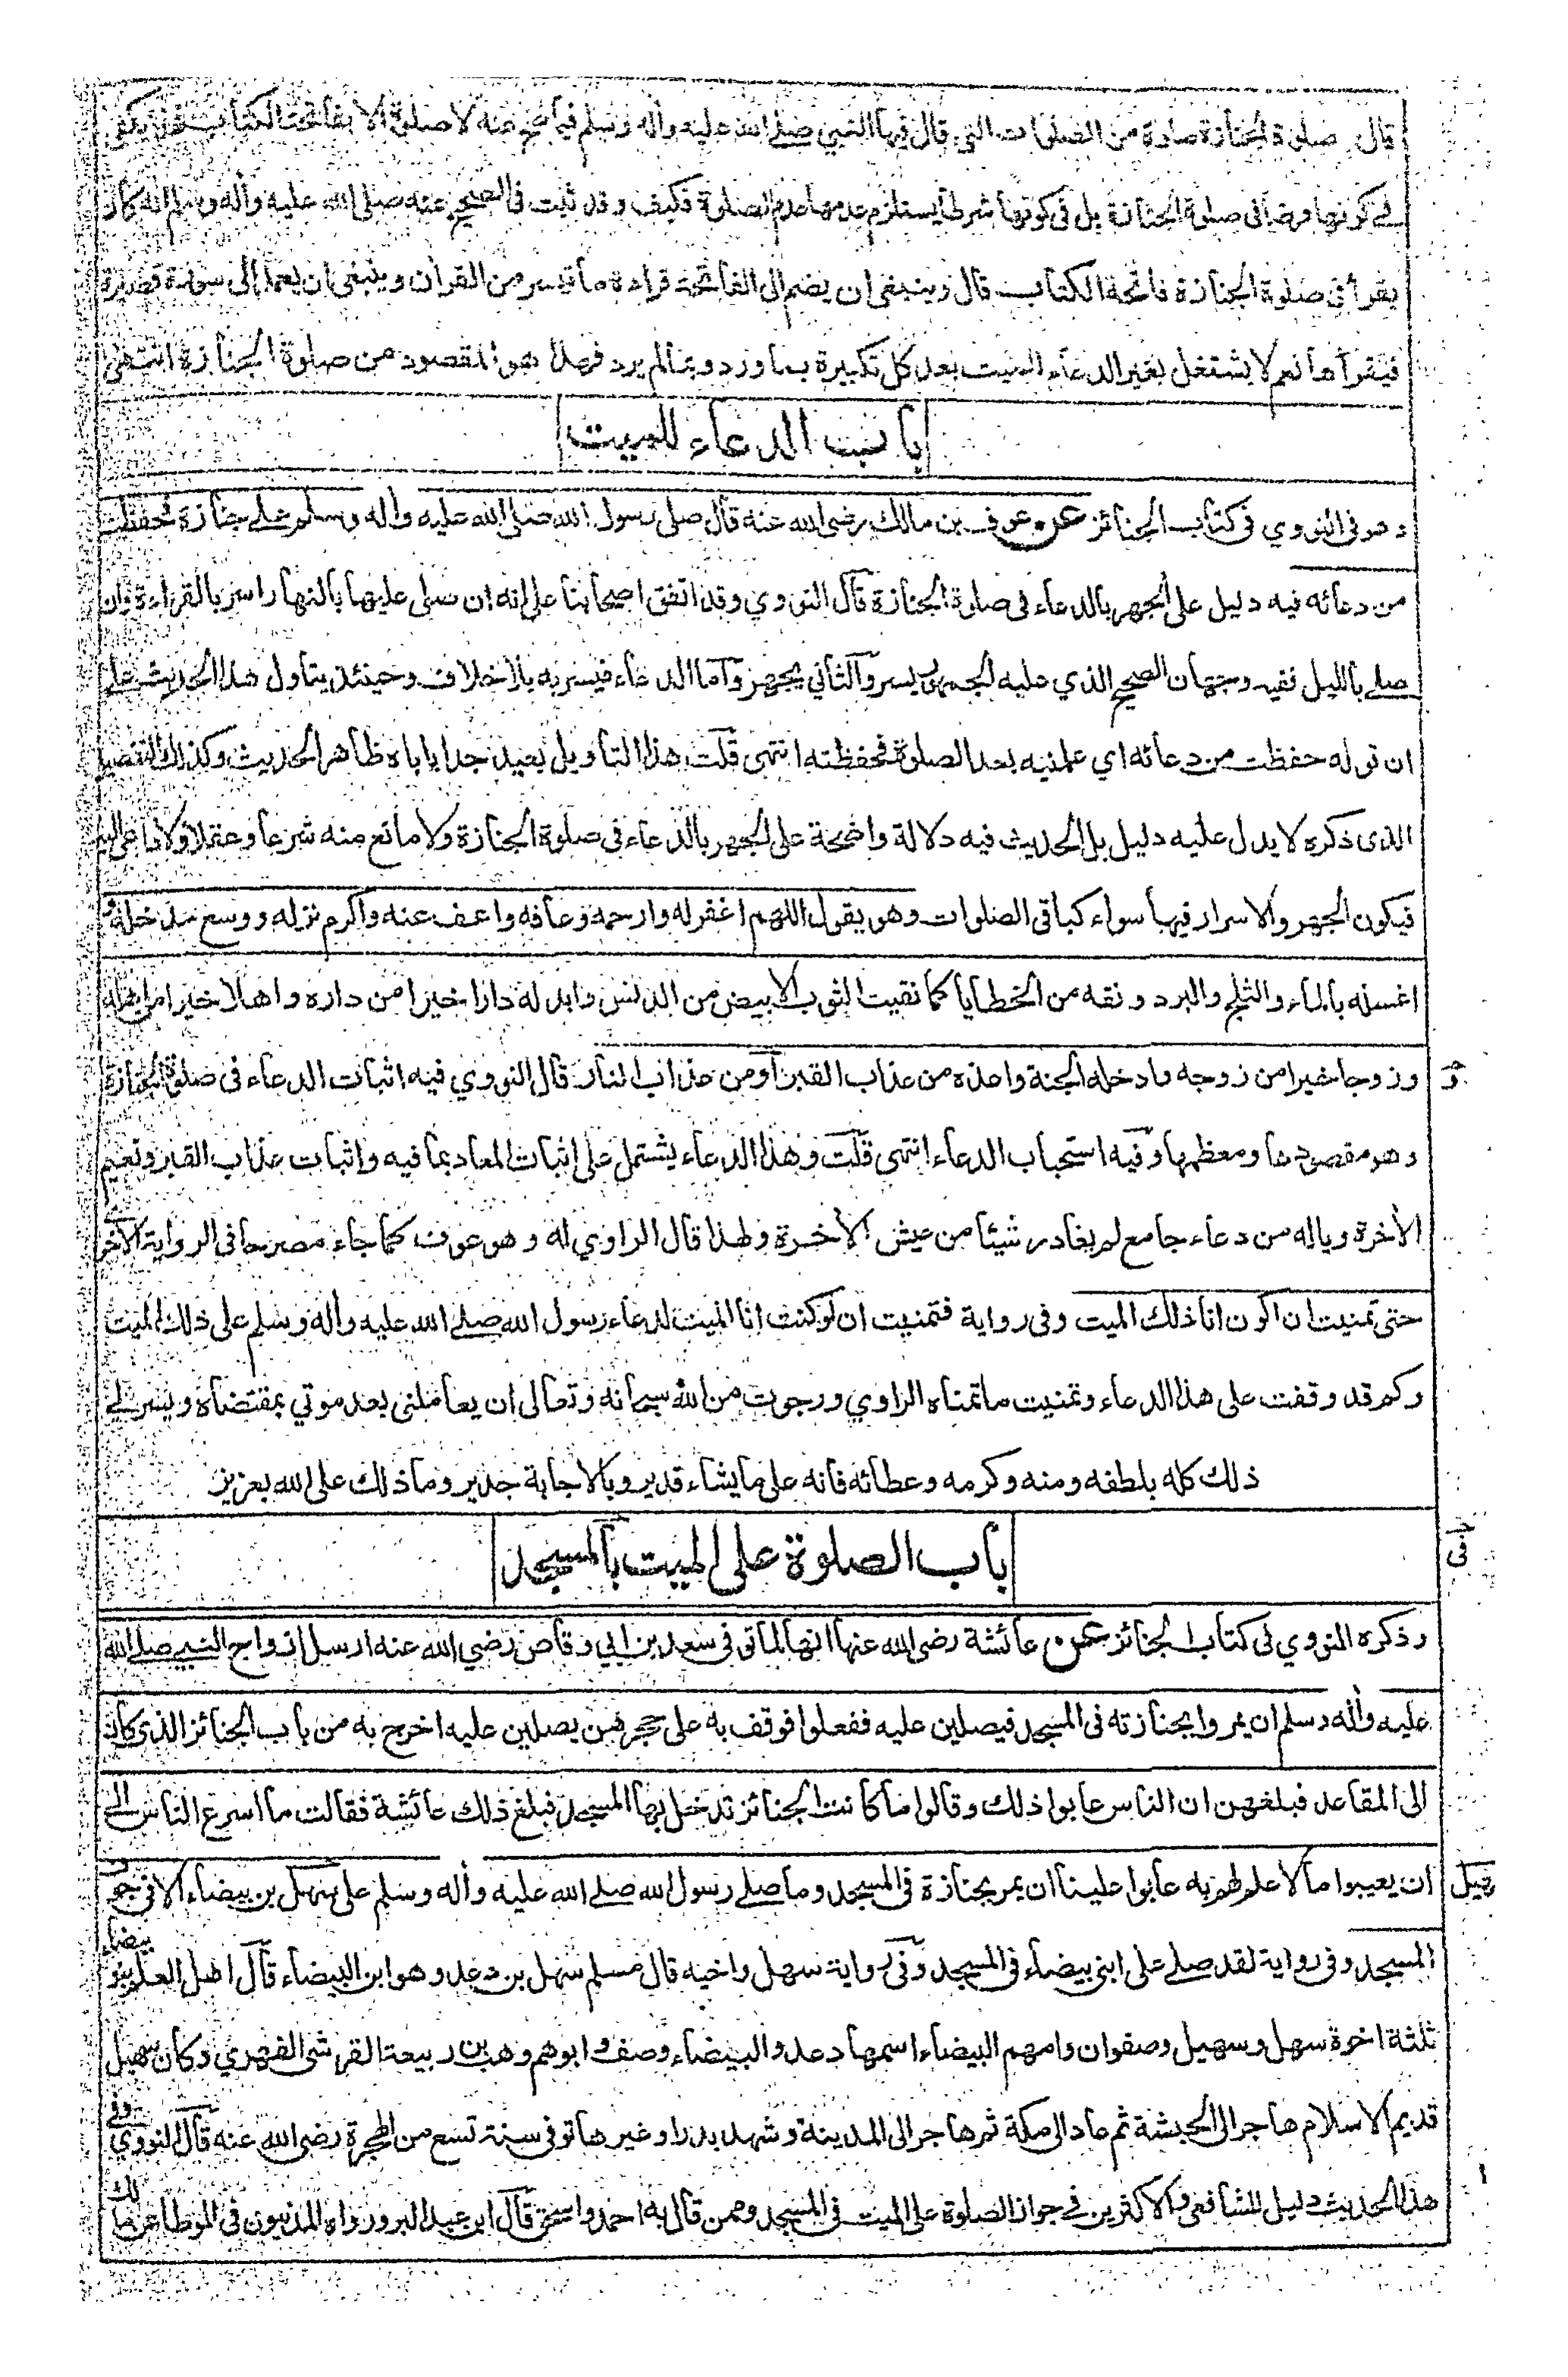 قال صلوة الجنازة صلوة من الصلوات التي قال فيها النبي صلى الله عليه وأله وسلم فيما صح عنه لا صلوة الا بفاتحة الكتاب فهذا يكفي
في كونها فرضا في صلوة الجنازة بل في كونها شرطا يستلزم عدمها عدم الصلوة فكيف وقد ثبت في الصحيح عنه صلى الله عليه وأله وسلم انه كان
يقرأ في صلوة الجنازة فاتحة الكتاب قال وينبغي ان يضم الى الفاتحة قراءة ما تيسر من القرأن وينبغي ان يعمد الى سورة قصيرة
فيقرأها نعم لا يشتغل بغير الدعاء للميت بعد كل تكبيرة بما ورد وبما لم يرد فهذا هو المقصود من صلوة الجنازة انتهى
باب الدعاء للميت
وهو في النووي في كتاب الجنائز عن عوف بن مالك رضي الله عنه قال صلى رسول الله صلى الله عليه وأله وسلم على جنازة فحفظت
من دعائه فيه دليل على الجهر بالدعاء في صلوة الجنازة قال النووي وقد اتفق اصحابنا على انه ان صلى عليها بالنهار اسر بالقراءة وان
صلى بالليل ففيه وجهان الصحيح الذي عليه الجمهور يسر والثاني يجهر وأما الدعاء فيسر به بلا خلاف وحينئذ يتأول هذا الحديث على
ان قوله حفظت من دعائه اي علمنيه بعد الصلوة فحفظته انتهى قلت هذا التأويل بعيد جدا ياباه ظاهر الحديث وكذلك التفصيل
الذي ذكره لا يدل عليه دليل بل الحديث فيه دلالة واضحة على الجهر بالدعاء في صلوة الجنازة ولا مانع منه شرعا وعقلا ولا داعي اليه
فيكون الجهر والاسرار فيها سواء كباقي الصلوات وهو يقول اللهم اغفر له وارحمه وعافه واعف عنه واكرم نزله ووسع مدخله و
اغسله بالماء والثلج والبرد ونقه من الخطايا كما نقيت الثوب الابيض من الدنس وابدله دارا خيرا من داره واهلا خيرا من اهله
وزوجا خيرا من زوجه وادخله الجنة واعذه من عذاب القبر أو من عذاب النار قال النووي فيه اثبات الدعاء في صلوة الجنازة
وهو مقصودها ومعظمها وفيه استحباب الدعاء انتهى قلت وهذا الدعاء يشتمل على اثبات المعاد بما فيه واثبات عذاب القبر ونعيم
الأخرة وياله من دعاء جامع لم يغادر شيئا من عيش الأخرة ولهذا قال الراوي له وهو عوف كما جاء مصرحا في الرواية الاخرى
حتى تمنيت ان اكون انا ذلك الميت وفي رواية فتمنيت ان لو كنت انا الميت لدعاء رسول الله صلى الله عليه وأله وسلم على ذلك الميت
وكم قد وقفت على هذا الدعاء وتمنيت ما تمناه الراوي ورجوت من الله سبحانه وتعالى ان يعاملني بعد موتي بمقتضاه وييسر لي
ذلك كله بلطفه ومنه وكرمه وعطائه فانه على ما يشاء قدير وبالاجابة جدير وما ذلك على الله بعزيز
باب الصلوة على الميت بالمسجد
وذكره النووي في كتاب الجنائز عن عائشة رضي الله عنها انها لما توفي سعد بن ابي وقاص رضي الله عنه ارسل ازواج النبي صلى الله
عليه وأله وسلم ان يمروا بجنازته في المسجد فيصلين عليه ففعلوا فوقف به على حجرهن يصلين عليه اخرج به من باب الجنائز الذي كان
الى المقاعد فبلغهن ان الناس عابوا ذلك وقالوا ما كانت الجنائز تدخل بها المسجد فبلغ ذلك عائشة فقالت ما اسرع الناس الى
ان يعيبوا ما لا علم لهم به عابوا علينا ان يمر بجنازة في المسجد وما صلى رسول الله صلى الله عليه وأله وسلم على سهيل بن بيضاء الا في جوف
المسجد وفي رواية لقد صلى على ابني بيضاء في المسجد وفي رواية سهل واخيه قال مسلم سهل بن دعد وهو ابن البيضاء قال اهل العلم بنو بيضاء
ثلثة اخوة سهل وسهيل وصفوان وامهم البيضاء اسمها دعد والبيضاء وصف وابوهم وهب بن ربيعة القرشي الفهري وكان سهيل
قديم الاسلام هاجر الى الحبشة ثم عاد الى مكة ثم هاجر الى المدينة وشهد بدرا وغيرها توفي سنة تسع من الهجرة رضي الله عنه قال النووي وفي
هذا الحديث دليل للشافعي والاكثرين في جواز الصلوة على الميت في المسجد وممن قال به احمد واسحق قال ابن عبد البر ورواه المدنيون في الموطأ عن مالك